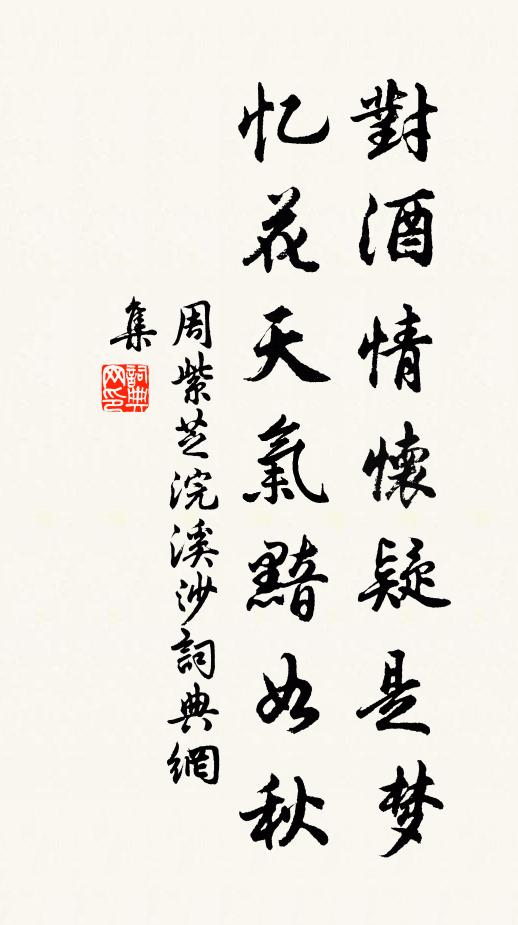 對酒情懷疑是梦
忆花天氣黯如秋
周紫芝浣溪沙詞典網
集
詞典网印